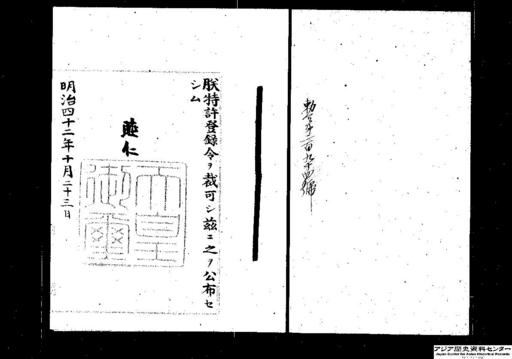 勅令第二百九十四號
朕特許登録令ヲ裁可シ茲ニ之ヲ公布セ
シム
睦仁
天皇
御璽
明治四十二年十月二十三日
アジア歴史資料センター
Japan Center for Asian Historical Records